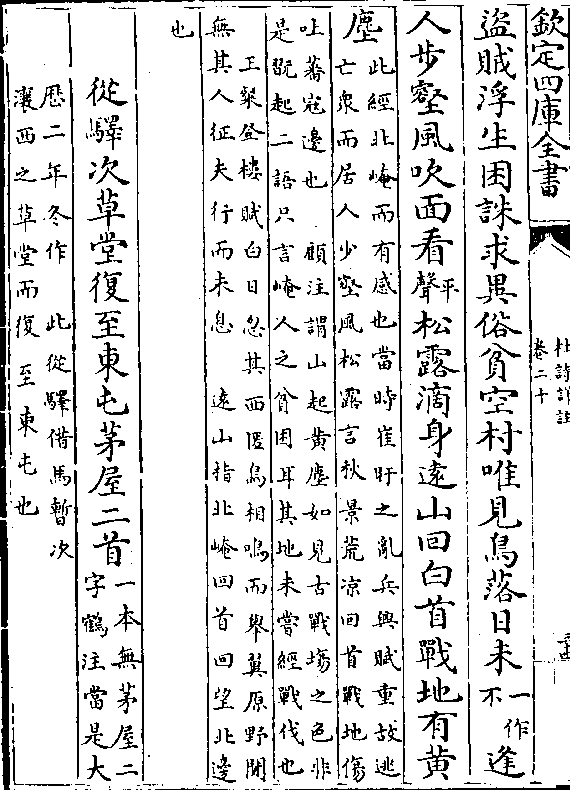 欽定四庫全書
杜詩詳註
卷二十
盜賊浮生困誅求異俗貧空村唯見鳥落日未一作不逢
人步壑風吹面看平聲松露滴身遠山回白首戰地有黃
塵此經北崦而有感也當時崔旰之亂兵興賦重故逃
亡衆而居人少壑風松露言秋景荒凉回首戰地傷
吐蕃寇邊也 顧注謂山起黄塵如見古戰場之色非
是蓋起二語只言崦人之貧困耳其地未嘗經戰伐也
王粲登樓賦白日忽其西匿鳥相鳴而舉翼原野闃
無其人征夫行而未息 遠山指北崦回首回望北邊
也
從驛次草堂復至東屯茅屋二首一本無茅屋二
字鶴注當是大
厯二年冬作 此從驛借馬暫次
瀼西之草堂而復至東屯也